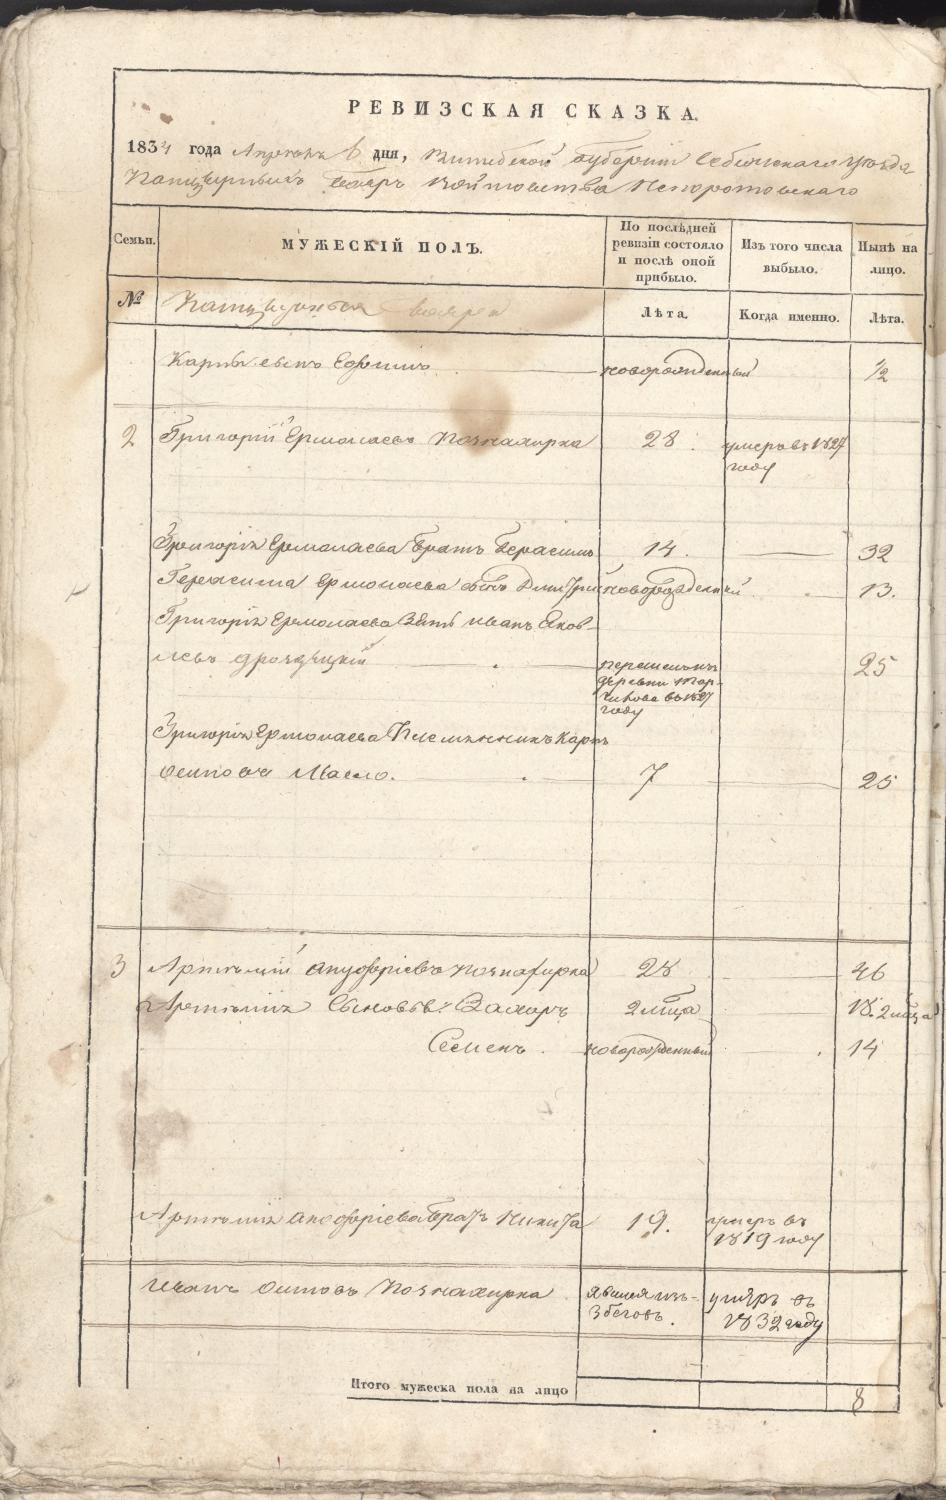 РЕВИЗСКАЯ СКАЗКА.
1834 года Апреля 6 дня, Витебской губернии Себежскаго уезда
Панцырныхъ бояръ войтовства Непоротовскаго
Семьи. МУЖЕСКІЙ ПОЛЪ. По послѣдней ревизіи состояло и послѣ оной прибыло. Изъ того числа выбыло. Нынѣ на лицо.
№ Панцырныя бояря Лѣта. Когда именно. Лѣта.
Карпа сынъ Ефимъ новорожденный 1/2
2 Григорій Ермолаевъ Познахирка 28 умеръ въ 1827 году
Григорія Ермолаева братъ Герасимъ 14. 32
Герасима Ермолаева сынъ Дмитрій новорожденный 13.
Григорія Ермолаева Зять Иванъ Яков-
левъ Дроздецкій перешелъ изъ деревни въ 1827 году 25
Григорія Ермолаева Племянникъ Карпъ
Осиповъ Масло. 7 25
3 Артемій Ануфріевъ Познахирка 28 46
Артемія Сыновья: Захаръ 2 мѣсца 18. 2 мѣсца
Семенъ. новорожденный 14
Артемія Ануфріева братъ Никита 19. умеръ въ 1819 году
Иванъ Осиповъ Познахирка явился изъ-збеговъ. умеръ въ 1832 году
Итого мужеска пола на лицо 8